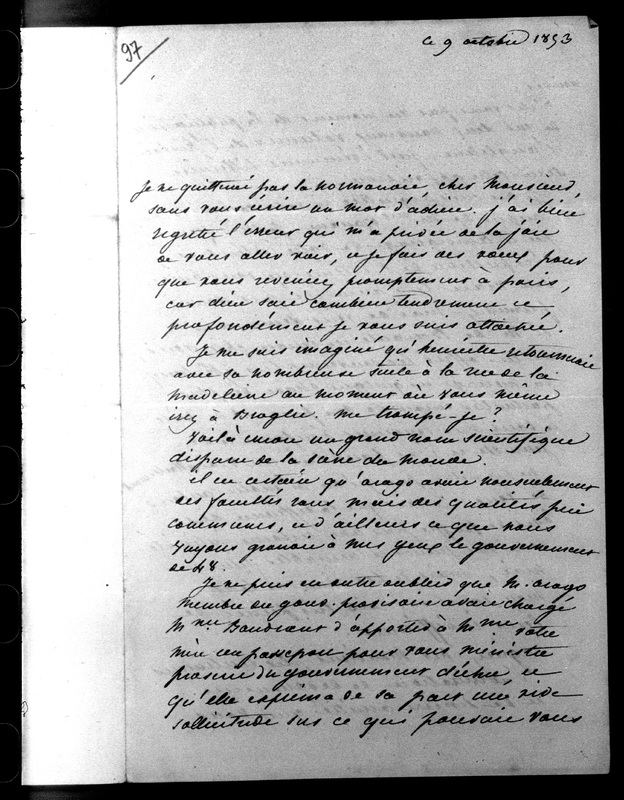 97
Ce 9 octobre 1853
Je ne quitterai pas la normandie, cher Monsieur,
sans vous écrire un mot d'adieu. j'ai bien
regretté l'erreur qui m'a privée de la joie
de vous aller voir, et je fais des vœux pour
que vous reveniez promptement à paris,
car dieu sait combien tendrement et
profondément je vous suis attachée.
Je me suis imaginé qu'henriette retournerait
avec sa nombreuse suite à la rue de la
Madeleine au moment où vous même
irez à Broglie. me trompé-je ?
Voilà encore un grand nom scientifique
disparu de la scène du monde.
il est certain qu'arago avait
des facultés rares mais des qualités peu
communes, et d'ailleurs ce que nous
voyons grandit à mes yeux le gouvernement
de 48.
Je ne puis en outre oublier que M. arago
membre du gouv. provisoire avait chargé
Mme Baudrand d'apporter à Mme votre
mère un passeport pour vous ministre
proscrit du gouvernement déchu, et
qu'elle exprima de sa part une vive
sollicitude sur ce qui pouvait vous